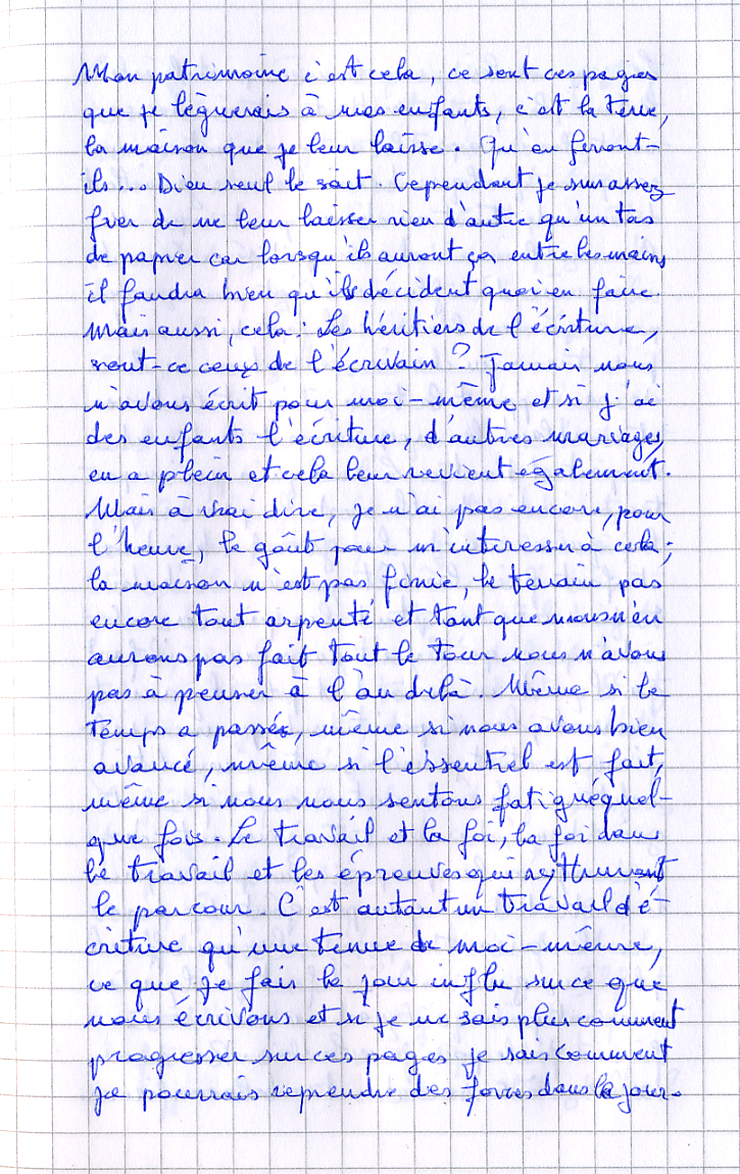 Mon patrimoine c'est cela, ce sont ces pages
que je lèguerais à mes enfants, c'est la terre,
la maison que je leur laisse. Qu'en feront-
ils... Dieu seul le sait. Cependant je suis assez
fier de ne leur laisser rien d'autre qu'un tas
de papier car lorsqu'ils auront ça entre les mains
il faudra bien qu'ils décident quoi en faire.
Mais aussi, cela : Les héritiers de l'écriture,
sont-ce ceux de l'écrivain ? Jamais nous
n'avons écrit pour moi-même et si j'ai
des enfants l'écriture, d'autres mariages,
en a plein et cela leur revient également.
Mais à vrai dire, je n'ai pas encore, pour
l'heure, le goût pour m'interesser à cela ;
la maison n'est pas finie, le terrain pas
encore tout arpenté et tant que nous n'en
aurons pas fait tout le tour nous n'avons
pas à penser à l'au delà. Même si le
temps a passé, même si nous avons bien
avancé, même si l'essentiel est fait,
même si nous nous sentons fatigué quel-
que fois. Le travail et la foi, la foi dans
le travail et les épreuves qui rythment
le parcour. C'est autant un travail d'é-
criture qu'une tenue de moi-même,
ce que je fais le jour influ sur ce que
nous écrivons et si je ne sais plus comment
progresser sur ces pages je sais comment
je pourrais reprendre des forces dans la jour-